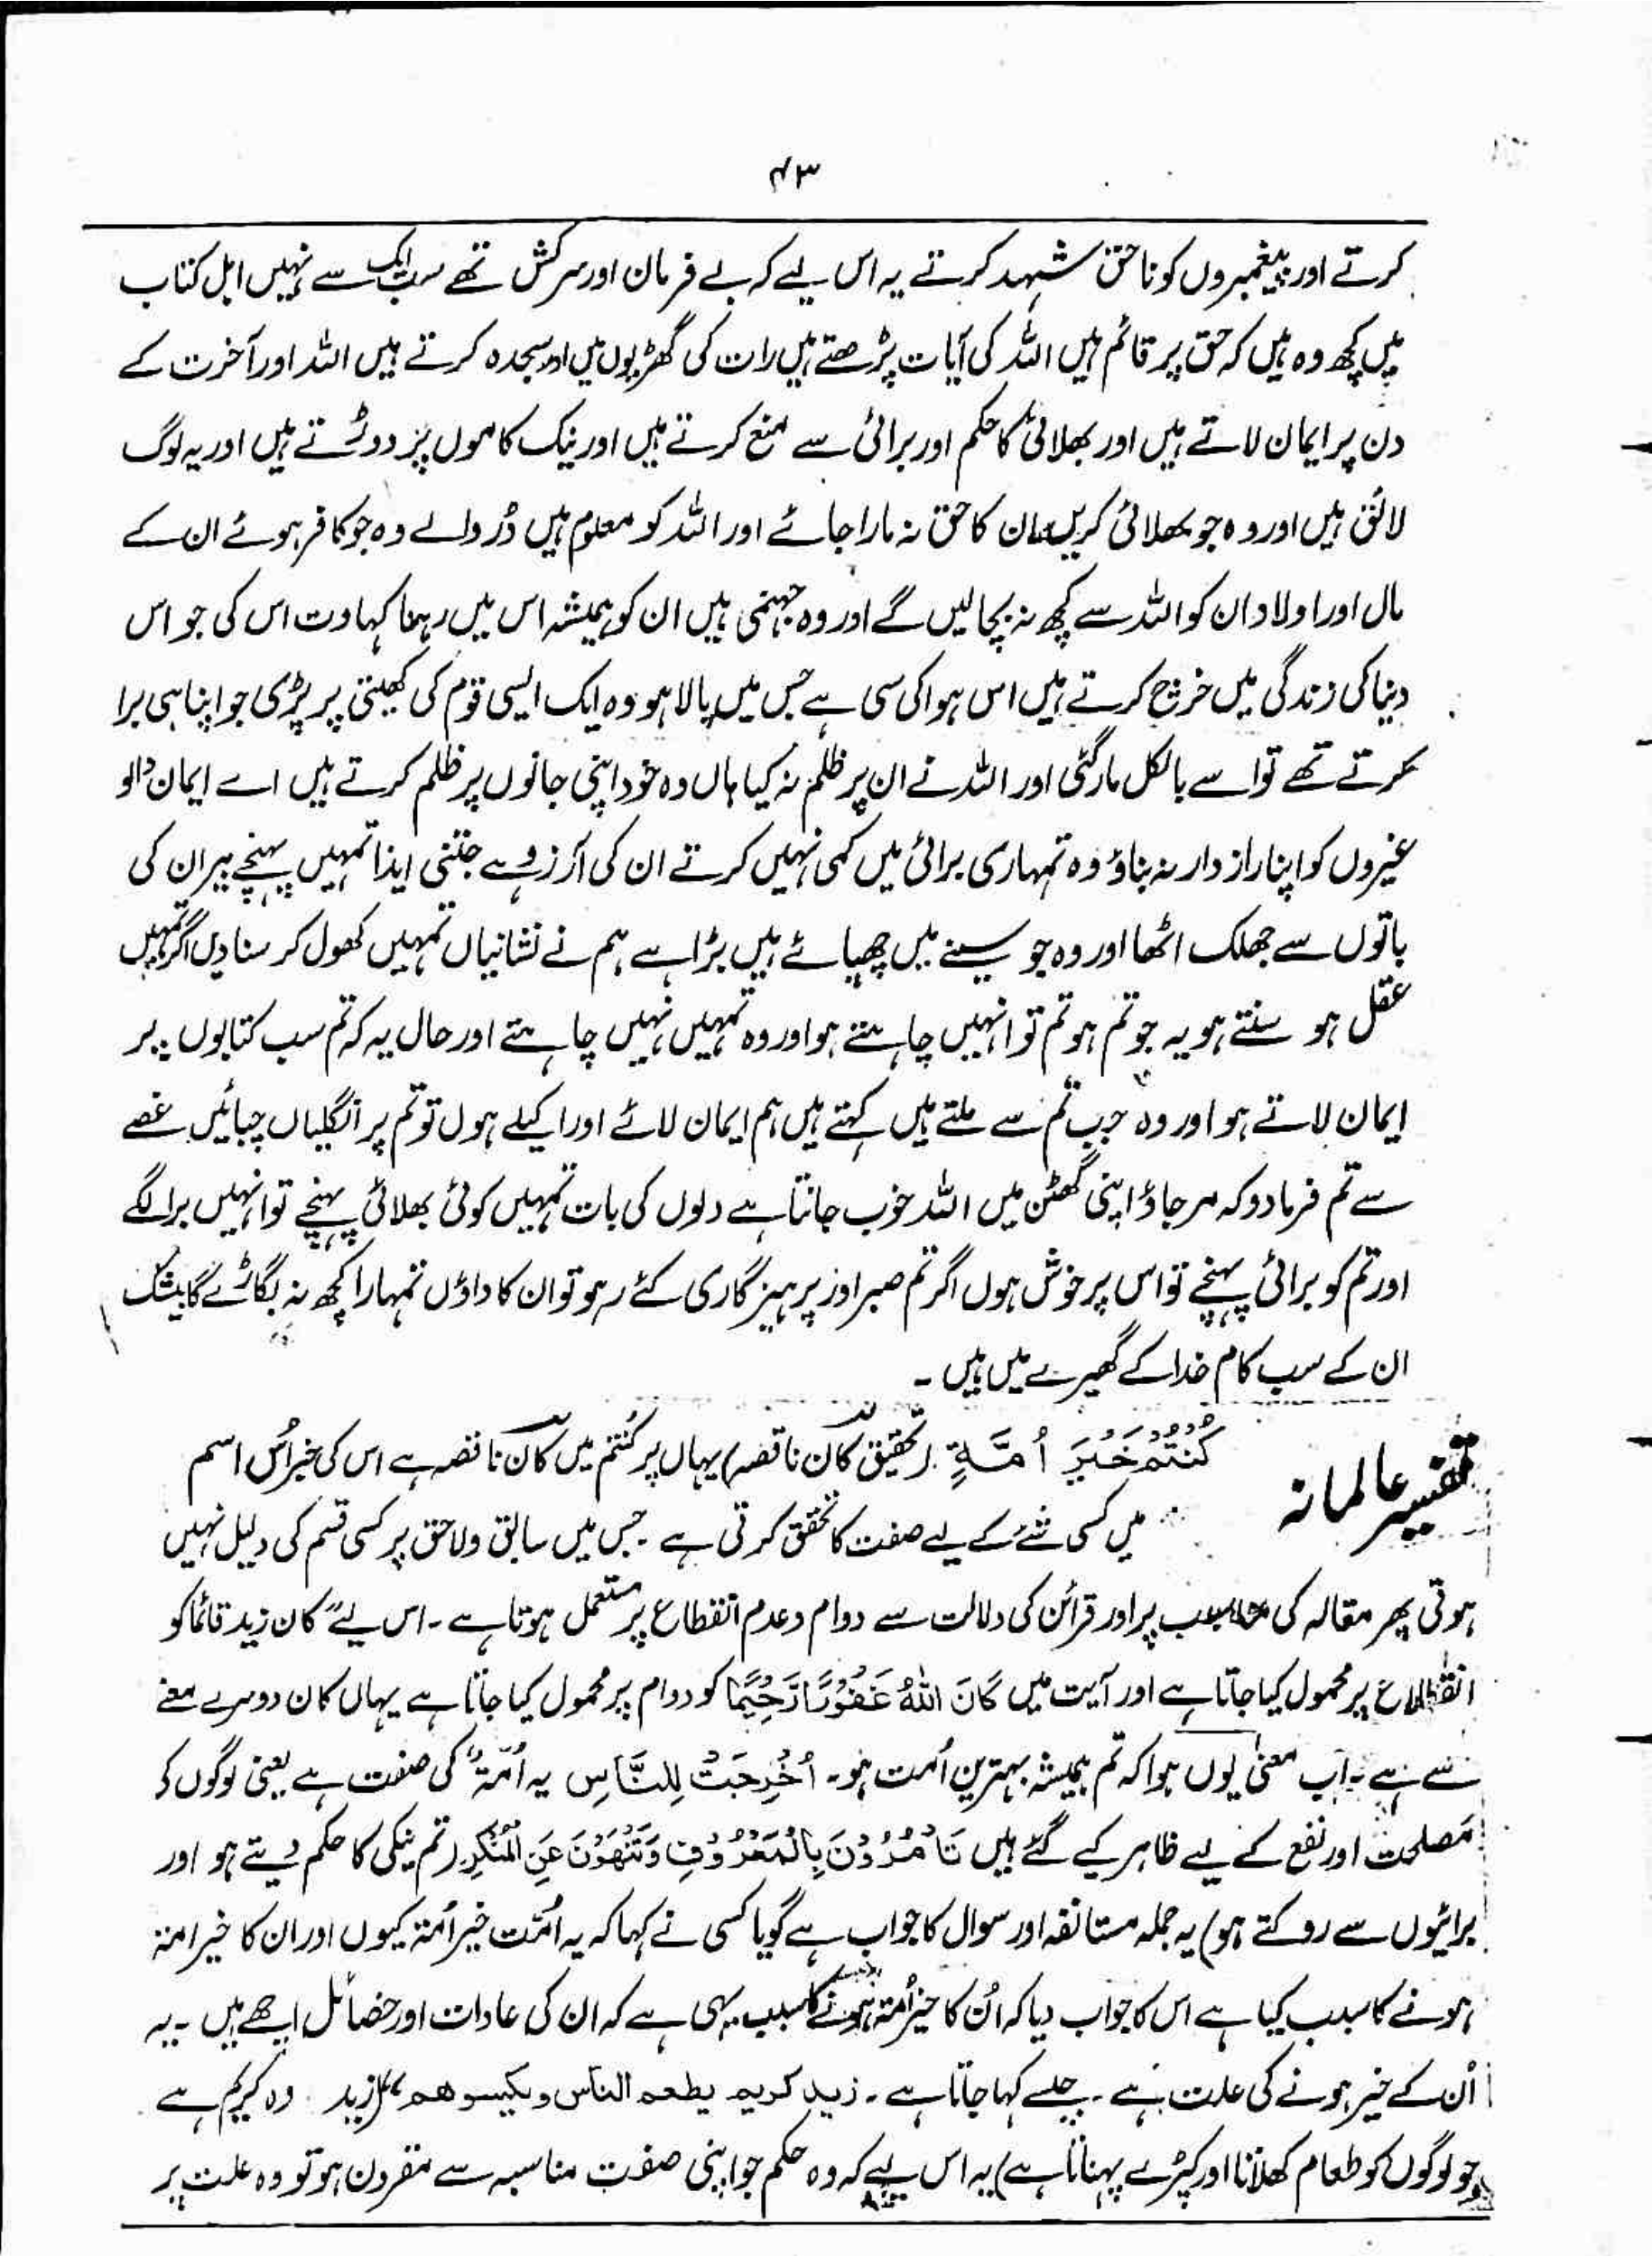 ۴۳
کرتے اور پیغمبروں کو ناحق شہید کرتے یہ اس لیے کہ بے فرمان اور سرکش تھے سب ایک سے نہیں اہل کتاب
میں کچھ وہ ہیں کہ حق پر قائم ہیں اللہ کی آیات پڑھتے ہیں رات کی گھڑیوں میں اور سجدہ کرتے ہیں اللہ اور آخرت کے
دن پر ایمان لاتے ہیں اور بھلائی کا حکم اور برائی سے منع کرتے ہیں اور نیک کاموں پر دوڑتے ہیں اور یہ لوگ
لائق ہیں اور وہ جو بھلائی کریں ان کا حق نہ مارا جائے اور اللہ کو معلوم ہیں ڈر والے وہ جو کافر ہوئے ان کے
مال اور اولاد ان کو اللہ سے کچھ نہ بچالیں گے اور وہ جہنمی ہیں ان کو ہمیشہ اس میں رہنا کہاوت اس کی جو اس
دنیا کی زندگی میں خرچ کرتے ہیں اس ہوا کی سی ہے جس میں پالا ہو وہ ایک ایسی قوم کی کھیتی پر پڑی جو اپنا ہی برا
کرتے تھے تو اسے بالکل مار گئی اور اللہ نے ان پر ظلم نہ کیا ہاں وہ خود اپنی جانوں پر ظلم کرتے ہیں اے ایمان والو
غیروں کو اپنا راز دار نہ بناؤ وہ تمہاری برائی میں کمی نہیں کرتے ان کی آرزو ہے جتنی ایذا تمہیں پہنچے بیر ان کی
باتوں سے جھلک اٹھا اور وہ جو سینے میں چھپائے ہیں بڑا ہے ہم نے نشانیاں تمہیں کھول کر سنا دیں اگر تمہیں
عقل ہو سنتے ہو یہ جو تم ہو تم تو انہیں چاہتے ہو اور وہ تمہیں نہیں چاہتے اور حال یہ کہ تم سب کتابوں پر
ایمان لاتے ہو اور وہ جب تم سے ملتے ہیں کہتے ہیں ہم ایمان لائے اور اکیلے ہوں تو تم پر انگلیاں چبائیں غصے
سے تم فرما دو کہ مر جاؤ اپنی گھٹن میں اللہ خوب جانتا ہے دلوں کی بات تمہیں کوئی بھلائی پہنچے تو انہیں برا لگے
اور تم کو برائی پہنچے تو اس پر خوش ہوں اگر تم صبر اور پرہیزگاری کئے رہو تو ان کا داؤں تمہارا کچھ نہ بگاڑے گا بیشک
ان کے سب کام خدا کے گھیرے میں ہیں ۔
تفسیر عالمانہ
کُنْتُمْ خَیْرَ اُمَّةٍ (تحقیق کان ناقصہ) یہاں پر کنتم میں کان ناقصہ ہے اس کی خبر اُس اسم
میں کسی شئے کے لیے صفت کا تحقق کرتی ہے ۔ جس میں سابق و لاحق پر کسی قسم کی دلیل نہیں
ہوتی پھر مقالہ کی پر اور قرائن کی دلالت سے دوام و عدم انقطاع پر مستعمل ہوتا ہے ۔ اس لیے کان زید قائما کو
انقطاع پر محمول کیا جاتا ہے اور آیت میں کَانَ اللّٰهُ غَفُوْرًا رَّحِیْمًا کو دوام پر محمول کیا جاتا ہے یہاں کان دوسرے معنے
سے ہے ۔ اب معنیٰ یوں ہوا کہ تم ہمیشہ بہترین اُمت ہو ۔ اُخْرِجَتْ لِلنَّاسِ یہ اُمّۃ کی صفت ہے یعنی لوگوں کی
مَصلحت اور نفع کے لیے ظاہر کیے گئے ہیں تَاْمُرُوْنَ بِالْمَعْرُوْفِ وَتَنْهَوْنَ عَنِ الْمُنْکَرِ (تم نیکی کا حکم دیتے ہو اور
برائیوں سے روکتے ہو) یہ جملہ مستانفہ اور سوال کا جواب ہے گویا کسی نے کہا کہ یہ اُمّت خیر اُمۃ کیوں اور ان کا خیر امۃ
ہونے کا سبب کیا ہے اس کا جواب دیا کہ اُن کا خیر اُمۃ ہونے کا سبب یہی ہے کہ ان کی عادات اور خصائل اچھے ہیں ۔ یہ
اُن کے خیر ہونے کی علت ہے ۔ جیسے کہا جاتا ہے ۔ زید کریم یطعم الناس ویکسوھم (زید وہ کریم ہے
جو لوگوں کو طعام کھلاتا اور کپڑے پہناتا ہے) یہ اس لیے کہ وہ حکم جو اپنی صفت مناسبہ سے مقرون ہو تو وہ علت پر